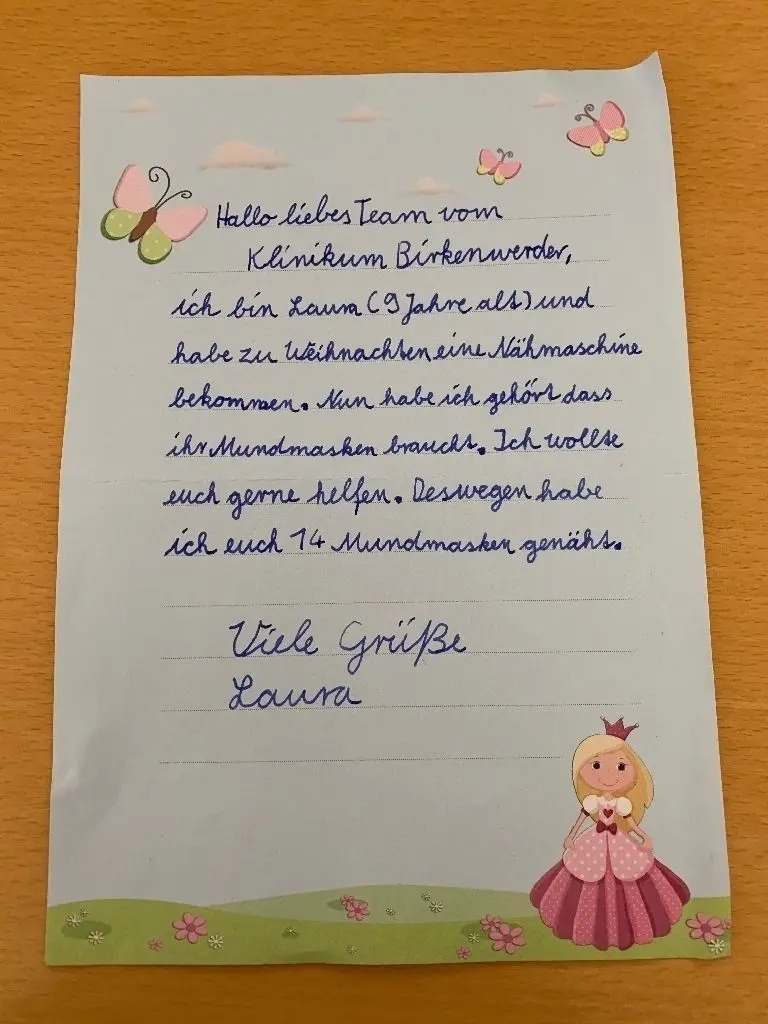 Hallo liebes Team vom
Klinikum Birkenwerder,
ich bin Laura (9 Jahre alt) und
habe zu Weihnachten eine Nähmaschine
bekommen. Nun habe ich gehört dass
ihr Mundmasken braucht. Ich wollte
euch gerne helfen. Deswegen habe
ich euch 14 Mundmasken genäht.
Viele Grüße
Laura